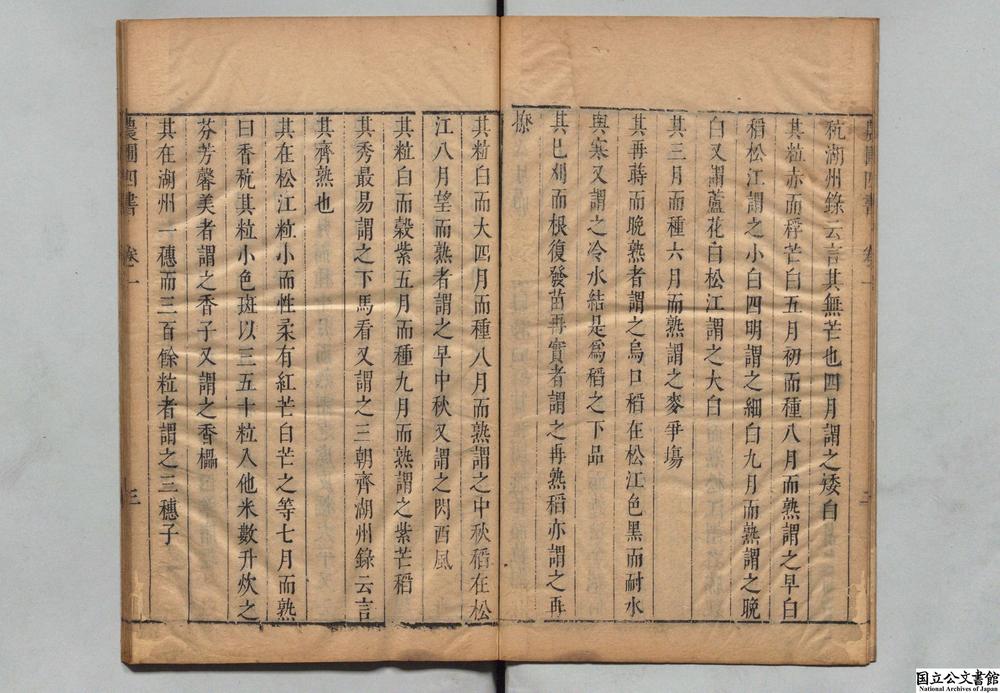 農圃四書 卷一 二
秔湖州錄云言其無芒也四月謂之矮白
其粒赤而稃芒白五月初而種八月而熟謂之早白
稻松江謂之小白四明謂之細白九月而熟謂之晚
白又謂蘆花白松江謂之大白
其三月而種六月而熟謂之麥爭場
其再蒔而晚熟者謂之烏口稻在松江色黑而耐水
與寒又謂之冷水結是為稻之下品
其已刈而根復發苗再實者謂之再熟稻亦謂之再
撩
其粒白而大四月而種八月而熟謂之中秋稻在松
江八月望而熟者謂之早中秋又謂之閃西風
其粒白而穀紫五月而種九月而熟謂之紫芒稻
其秀最易謂之下馬看又謂之三朝齊湖州錄云言
其齊熟也
其在松江粒小而性柔有紅芒白芒之等七月而熟
曰香秔其粒小色斑以三五十粒入他米數升炊之
芬芳馨美者謂之香子又謂之香櫑
其在湖州一穗而三百餘粒者謂之三穗子
農圃四書 卷一 三
国立公文書館
National Archives of Japan